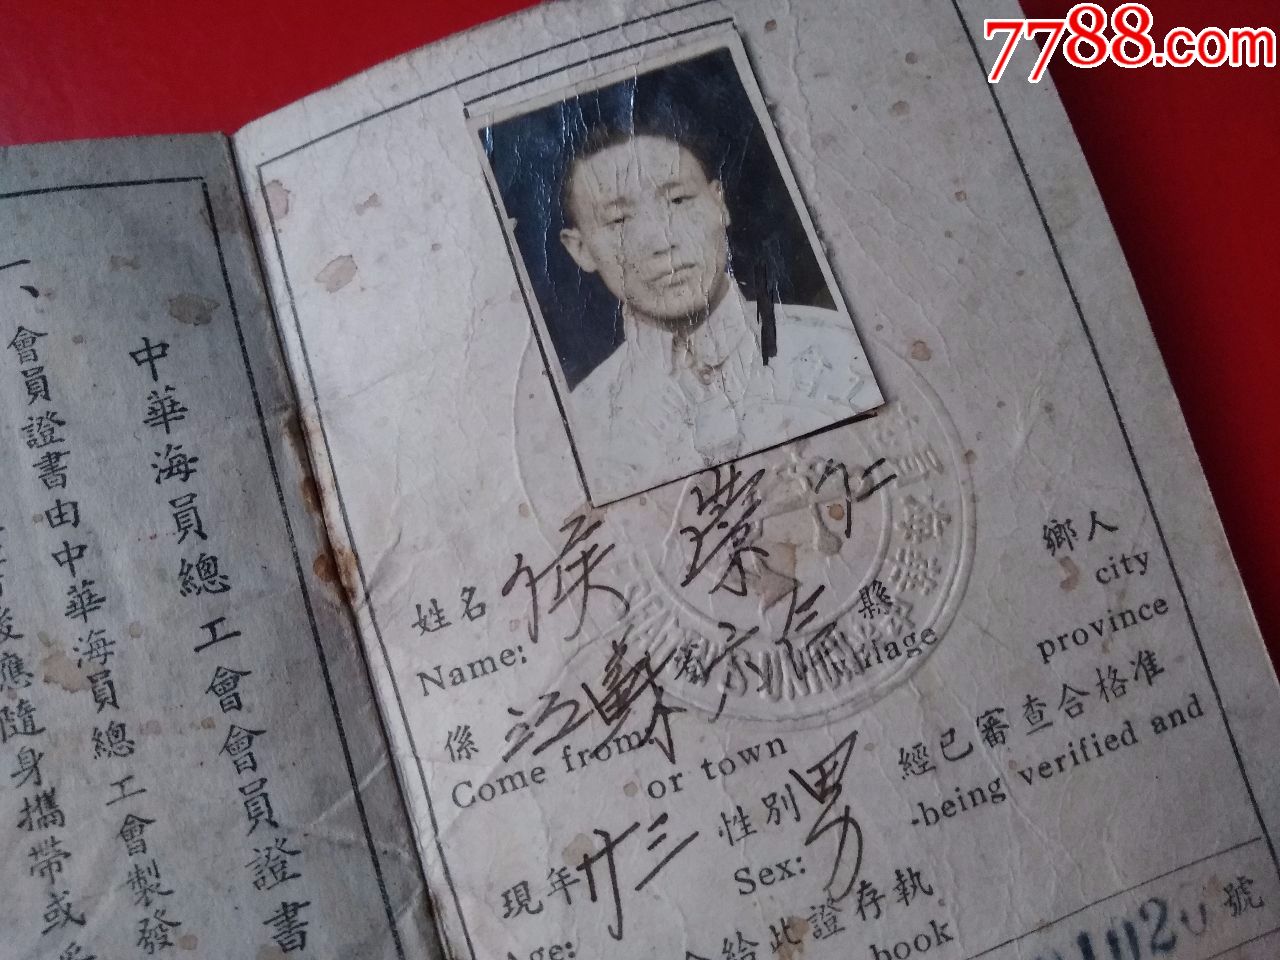 7788.com
中華海員總工會會員證書
一、會員證書由中華海員總工會製發
後應隨身攜帶或
姓名 侯榮仁
Name:
係 江蘇省 縣 鄉人
Come from village city
or town province
現年 廿三 性別 男 經已審查合格准
Age: Sex: being verified and
給此證存執
book
號